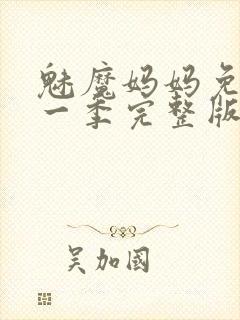 魅魔妈妈免
一季完整版
吴加國